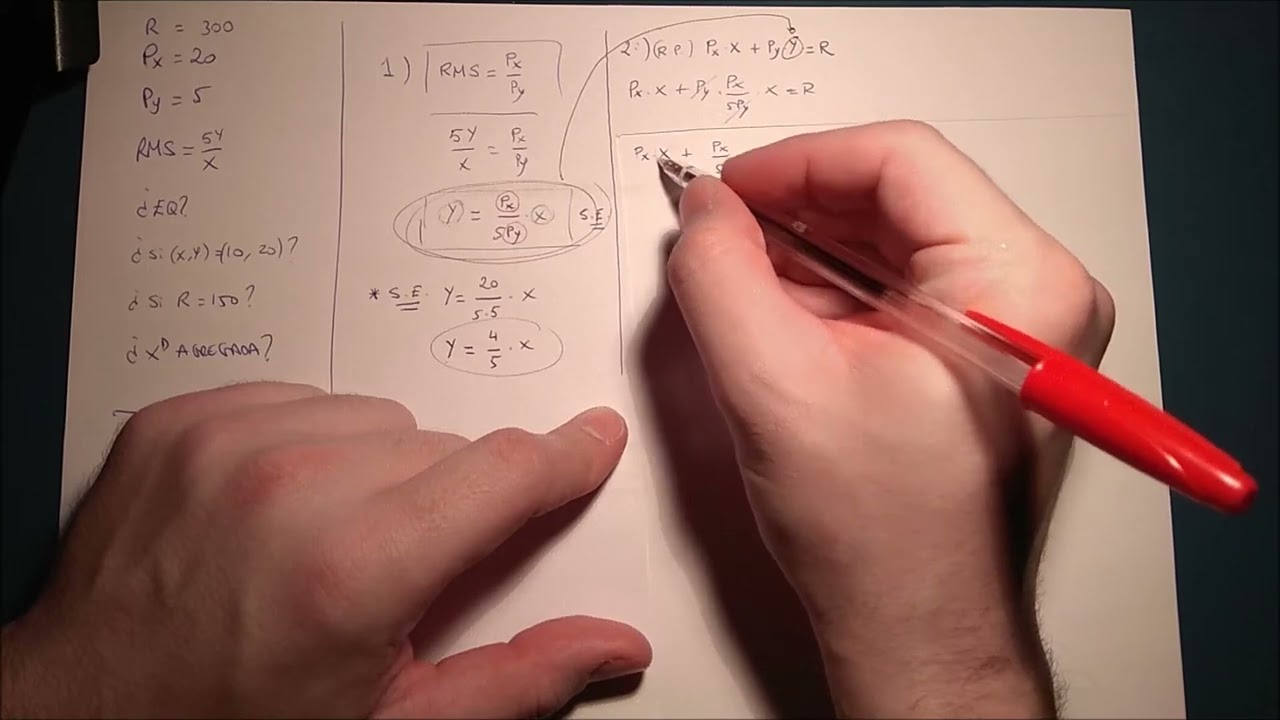 R = 300
Px = 20
Py = 5
RMS = 5Y/X
¿EQ?
¿Si (X,Y) = (10, 20)?
¿Si R = 150?
¿X^D AGREGADA?
1) RMS = Px/Py
5Y/X = Px/Py
Y = Px/5Py · X S.E
* S.E. Y = 20/5.5 · X
Y = 4/5 · X
2:) (R.P.) Px · X + Py Y = R
Px · X + Py · Px/5Py · X = R
Px · X + Px/5